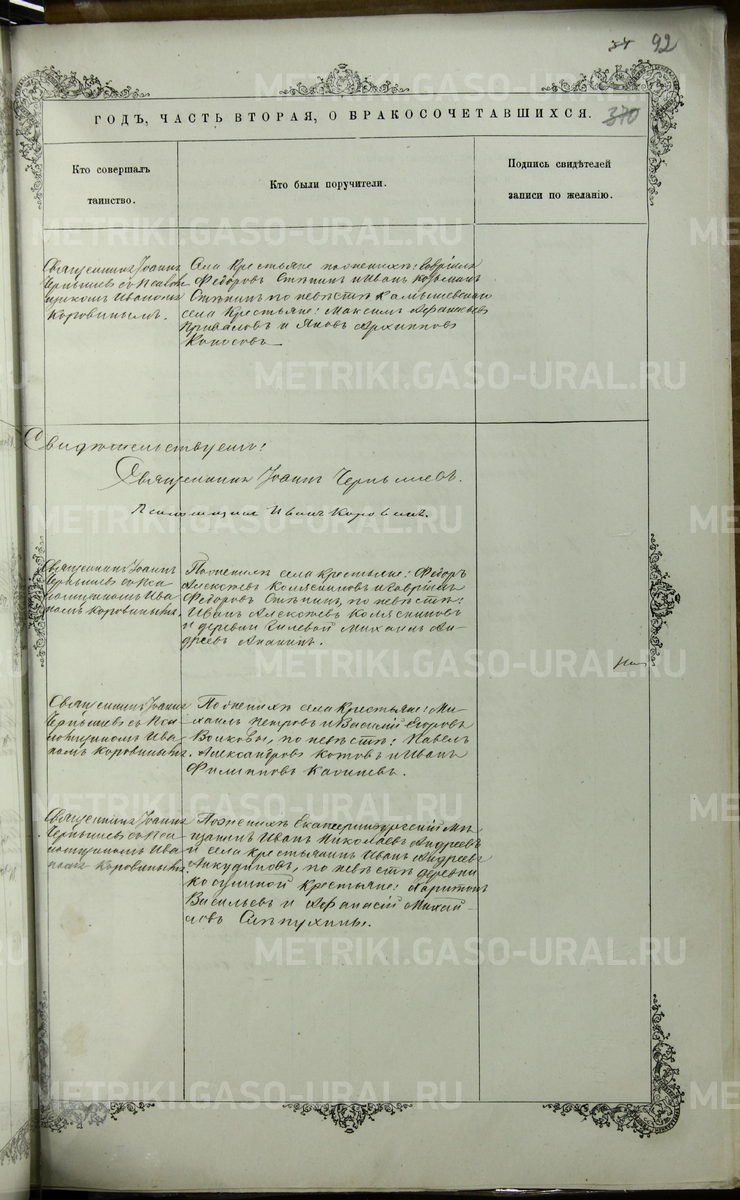 92
ГОДЪ, ЧАСТЬ ВТОРАЯ, О БРАКОСОЧЕТАВШИХСЯ.
370
Кто совершалъ
таинство.
Кто были поручители.
Подпись свидѣтелей
записи по желанію.
Священникъ Іоаннъ
Чернышевъ съ Псалом-
щикомъ Иваномъ
Коровинымъ.
Села Крестьяне по женихѣ: Гавріилъ
Федоровъ Стѣнинъ и Иванъ Козьминъ
Стѣнинъ по невѣстѣ Камышевскаго
села Крестьяне: Максимъ
Приваловъ и Яковъ Архиповъ
Колосовъ
Свидѣтельствуемъ:
Священникъ Іоаннъ Чернышевъ.
Псаломщикъ Иванъ Коровинъ.
Священникъ Іоаннъ
Чернышевъ съ Пса-
ломщикомъ Ива-
номъ Коровинымъ.
По женихѣ села крестьяне: Федоръ
Алексѣевъ Колясниковъ и Гавріилъ
Федоровъ Стѣнинъ, по невѣстѣ:
Иванъ Алексѣевъ Колясниковъ
и деревни Гилевой Михаилъ Ан-
дреевъ Ананьинъ.
Священникъ Іоаннъ
Чернышевъ съ Пса-
ломщикомъ Ива-
номъ Коровинымъ.
По женихѣ села Крестьяне: Ми-
хаилъ Петровъ и Василій Егоровъ
Волковы, по невѣстѣ: Павелъ
Александровъ Котовъ и Иванъ
Филипповъ
Священникъ Іоаннъ
Чернышевъ съ Пса-
ломщикомъ Ива-
номъ Коровинымъ.
По женихѣ Екатеринбургскій Мѣ-
щанинъ Иванъ Николаевъ Андреевъ
и села крестьянинъ Иванъ Андреевъ
Анкудиновъ, по невѣстѣ деревни
Косулиной Крестьяне: Харитонъ
Васильевъ и Афанасій Михай-
ловъ Слѣпухины.
METRIKI.GASO-URAL.RU